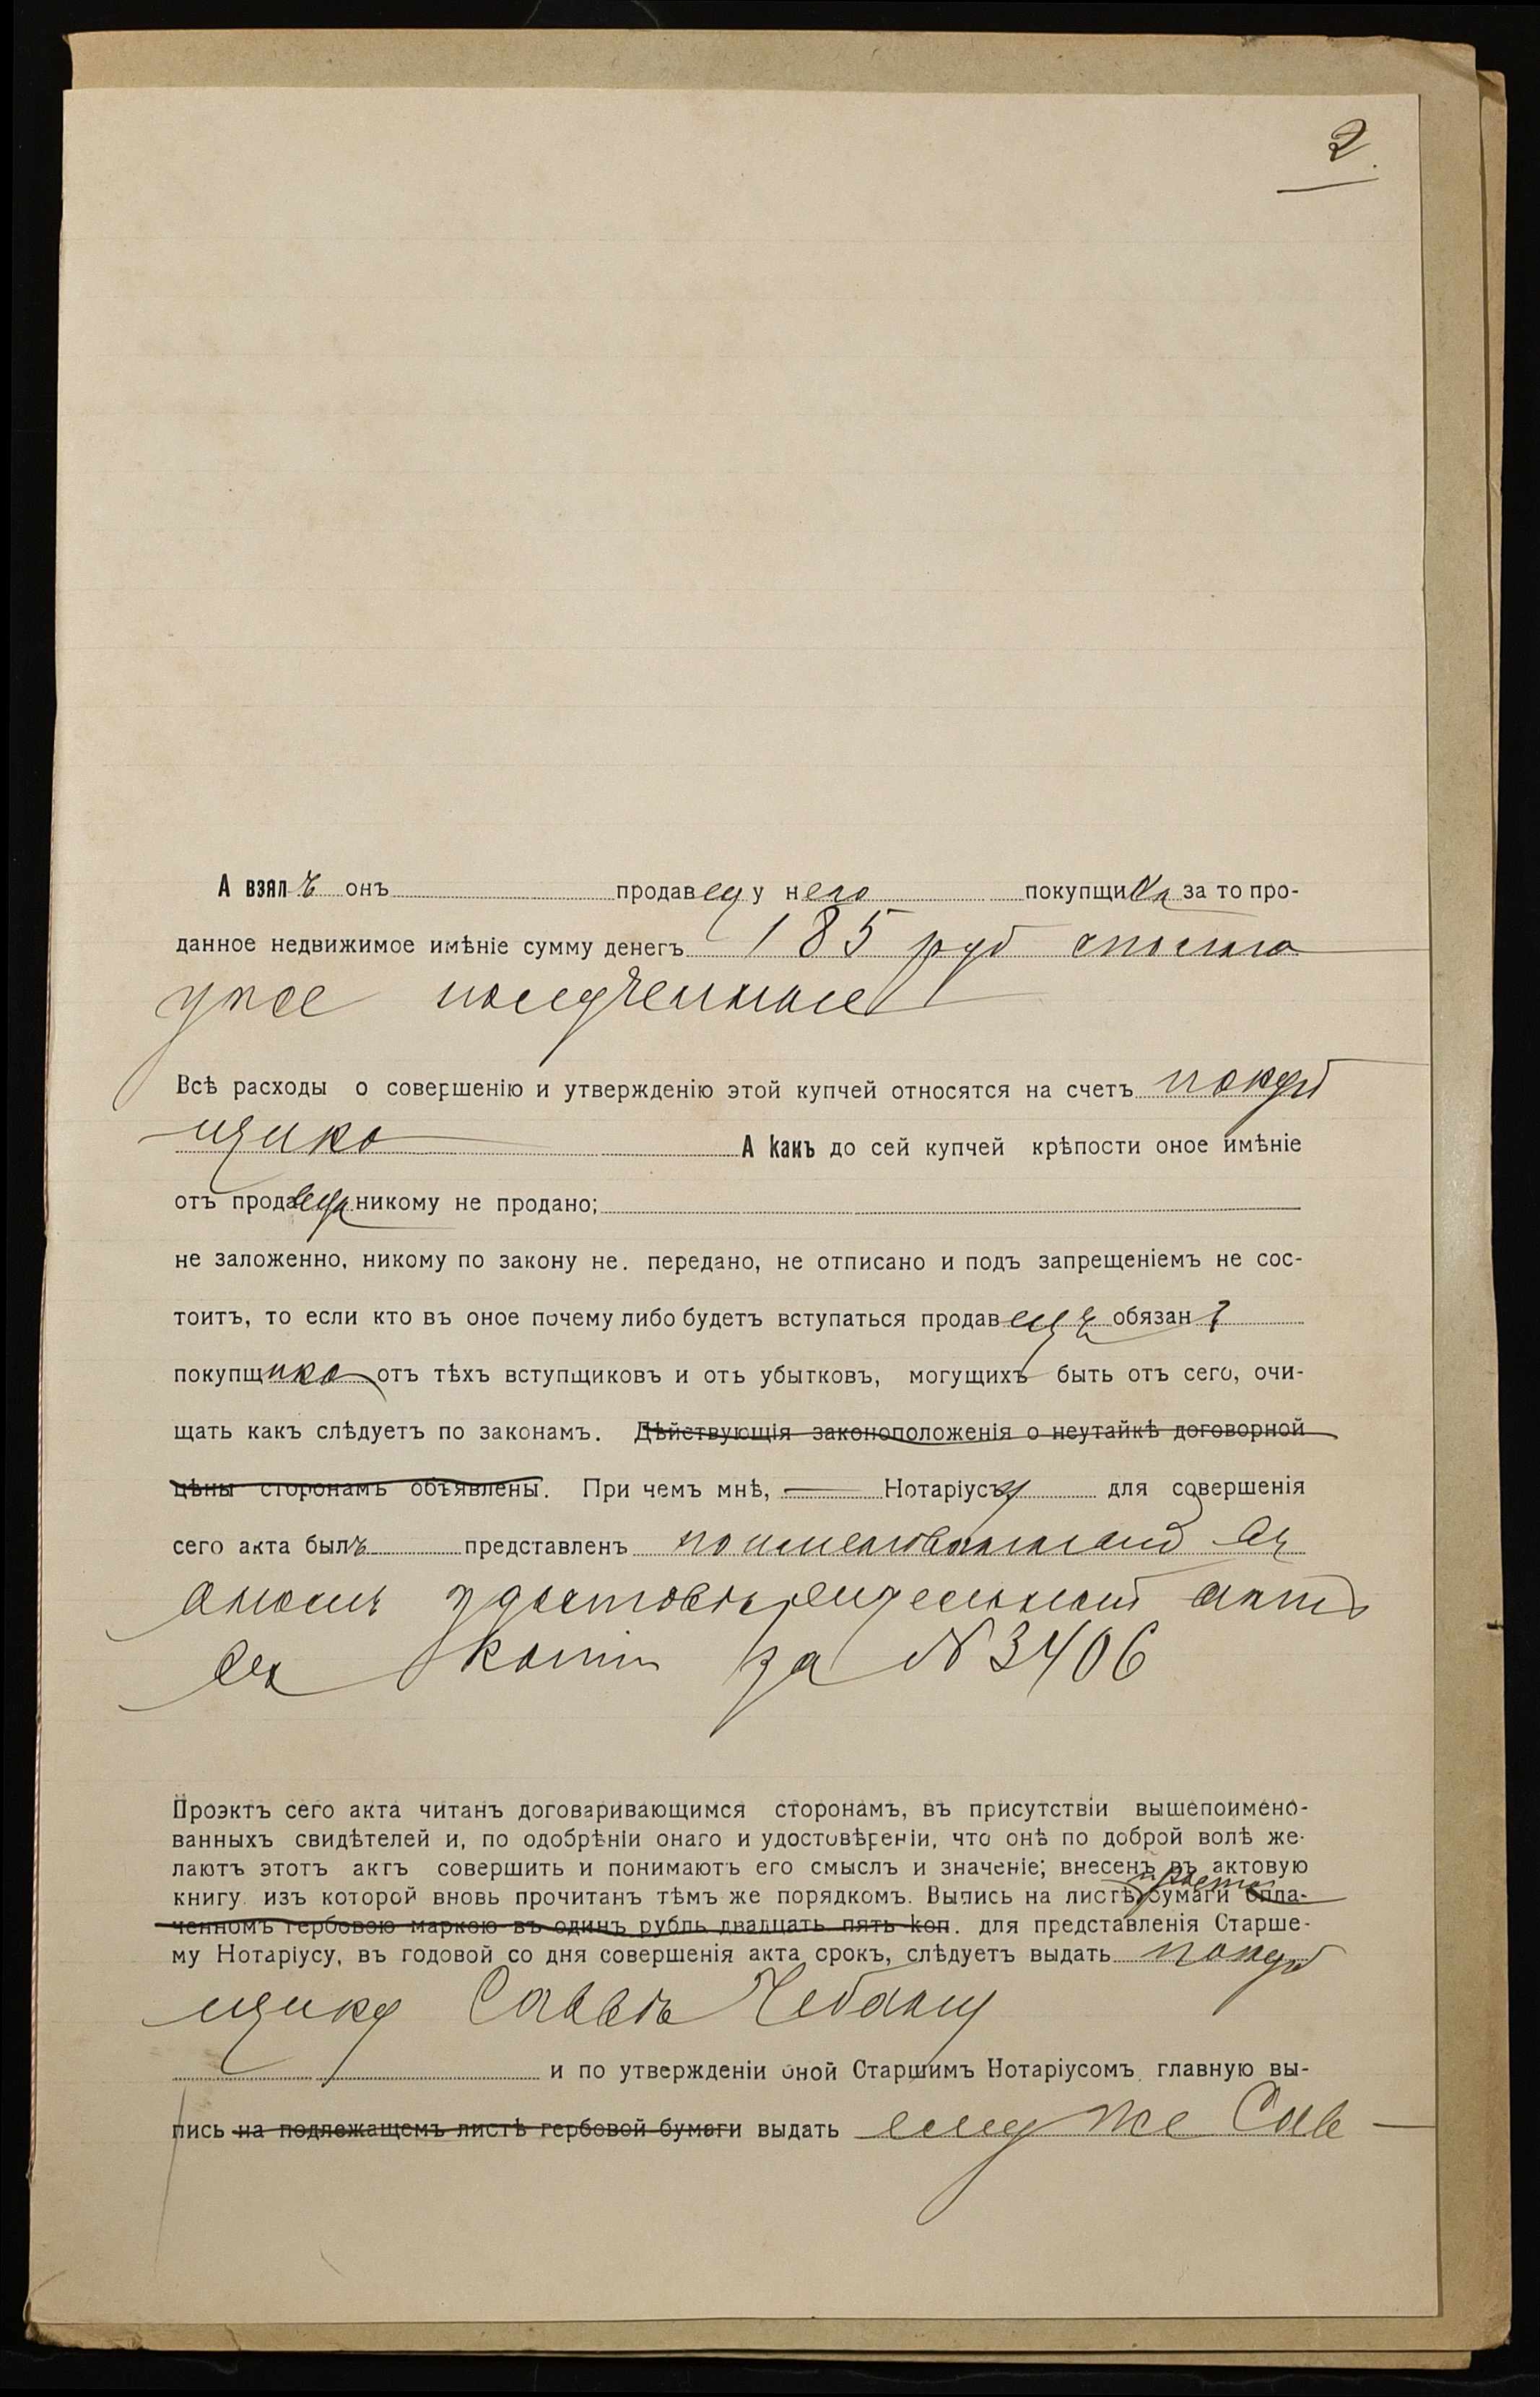 2
А взялъ онъ продавецъ у него покупщика за то про-
данное недвижимое имѣніе сумму денегъ 185 руб сполна
уже полученные
Всѣ расходы о совершенію и утвержденію этой купчей относятся на счетъ покуп
щика А какъ до сей купчей крѣпости оное имѣніе
отъ продавца никому не продано;
не заложенно, никому по закону не. передано, не отписано и подъ запрещеніемъ не сос-
тоитъ, то если кто въ оное почему либо будетъ вступаться продавецъ обязанъ
покупщика отъ тѣхъ вступщиковъ и отъ убытковъ, могущихъ быть отъ сего, очи-
щать какъ слѣдуетъ по законамъ. Дѣйствующія законоположенія о неутайкѣ договорной
цѣны сторонамъ объявлены. При чемъ мнѣ, Нотаріусу для совершенія
сего акта былъ представленъ поименованный въ
ономъ удостовѣрительный актъ
въ копіи за № 3406
Проэктъ сего акта читанъ договаривающимся сторонамъ, въ присутствіи вышепоимено-
ванныхъ свидѣтелей и, по одобрѣніи онаго и удостовѣреніи, что онѣ по доброй волѣ же-
лаютъ этотъ актъ совершить и понимаютъ его смыслъ и значеніе; внесенъ въ актовую
книгу. изъ которой вновь прочитанъ тѣмъ же порядкомъ. Выпись на листѣ простой бумаги опла-
ченномъ гербовою маркою въ одинъ рубль двадцать пять коп. для представленія Старше-
му Нотаріусу, въ годовой со дня совершенія акта срокъ, слѣдуетъ выдать покуп
щику Саввѣ Чебану
и по утвержденіи оной Старшимъ Нотаріусомъ главную вы-
пись на подлежащемъ листѣ гербовой бумаги выдать ему же Сав